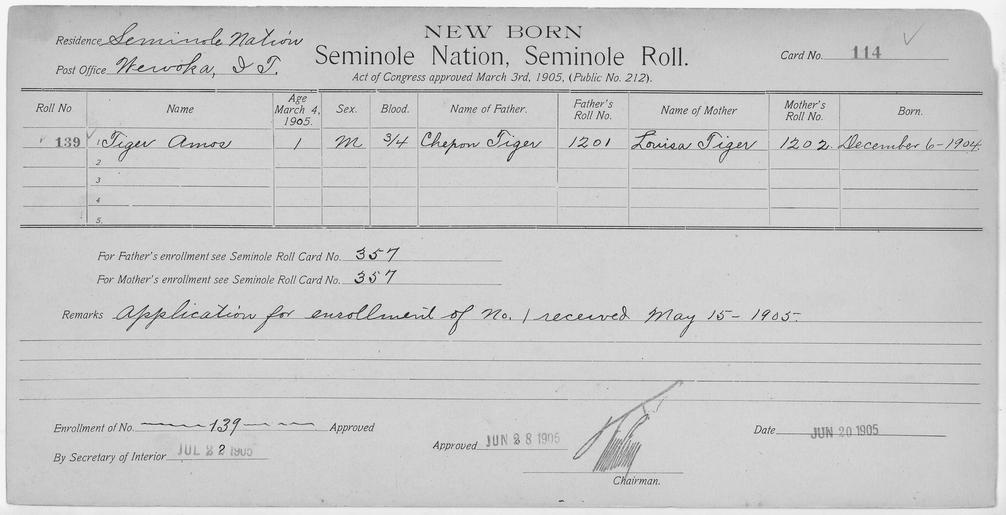 NEW BORN
Seminole Nation, Seminole Roll.
Act of Congress approved March 3rd, 1905, (Public No. 212).
Residence Seminole Nation
Post Office Wewoka, I T.
Card No. 114
Roll No Name Age March 4, 1905. Sex. Blood. Name of Father. Father's Roll No. Name of Mother Mother's Roll No. Born.
139 1 Tiger Amos 1 M 3/4 Chepon Tiger 1201 Louisa Tiger 1202 December 6-1904.
2
3
4
5.
For Father's enrollment see Seminole Roll Card No. 357
For Mother's enrollment see Seminole Roll Card No. 357
Remarks Application for enrollment of No. 1 received May 15- 1905.
Enrollment of No. 139 Approved
By Secretary of Interior JUL 22 1905
Approved JUN 28 1905
Chairman.
Date JUN 20 1905